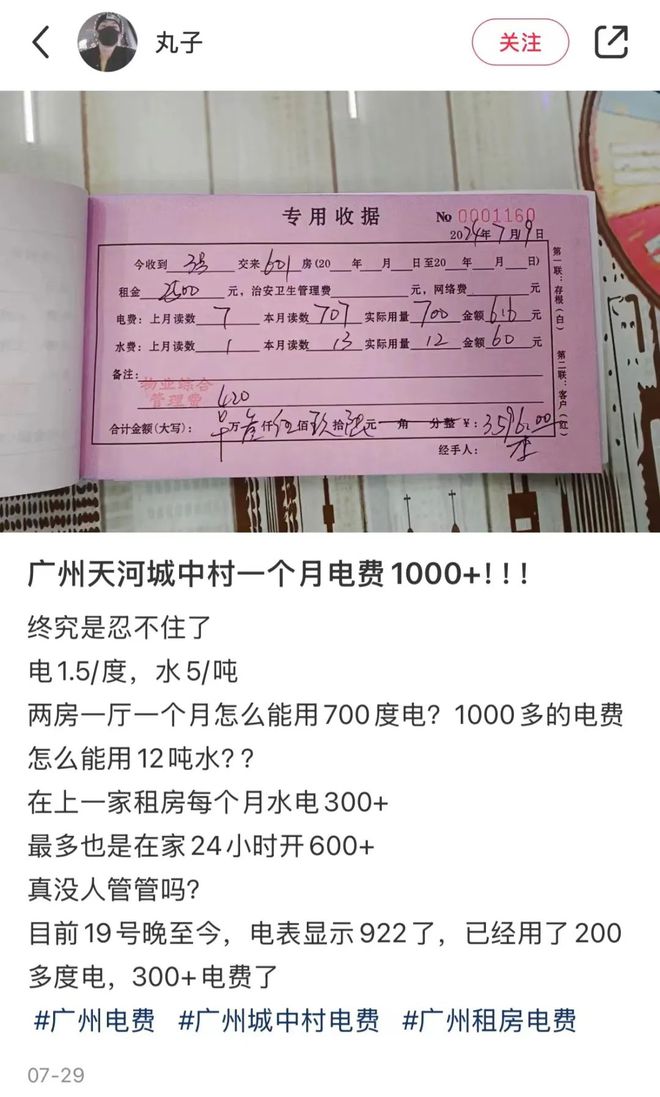 丸子
关注
专用收据
No 0001160
2024年7月19日
今收到 3号 交来601房(20 年 月 日至20 年 月 日)
租金 2500 元，治安卫生管理费 元，网络费 元
电费：上月读数 7 本月读数 707 实际用量 700 金额 616 元
水费：上月读数 1 本月读数 13 实际用量 12 金额 60 元
备注：
物业综合
管理费 420
合计金额(大写)： 万叁仟伍佰玖拾陆元 角 分整 ¥：3596.00
经手人：李
第一联：存根(白)
第二联：客户(红)
广州天河城中村一个月电费1000+!!!
终究是忍不住了
电1.5/度，水5/吨
两房一厅一个月怎么能用700度电？1000多的电费
怎么能用12吨水??
在上一家租房每个月水电300+
最多也是在家24小时开600+
真没人管管吗?
目前19号晚至今，电表显示922了，已经用了200
多度电，300+电费了
#广州电费 #广州城中村电费 #广州租房电费
07-29